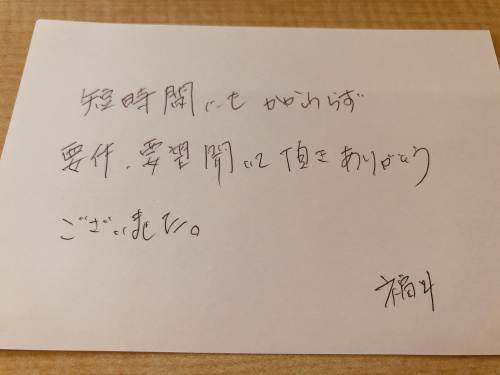 短時間にもかかわらず
要件、要望聞いて頂きありがとう
ございました。
福井